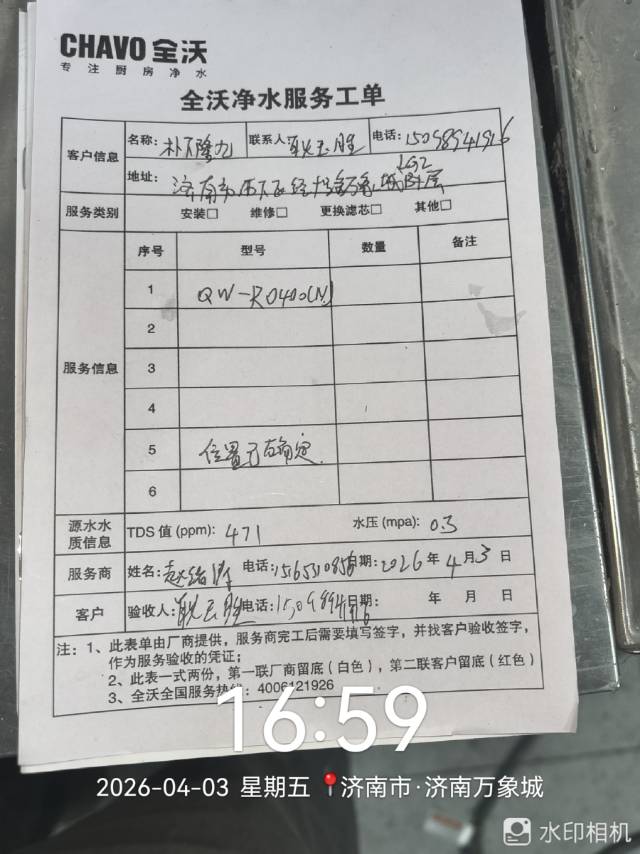 CHAVO 全沃
专注厨房净水
全沃净水服务工单
客户信息
名称: 联系人 电话: 15098941916
地址: LG2
济南市
服务类别 安装□ 维修□ 更换滤芯□ 其他□
服务信息
序号 型号 数量 备注
1 QW-RO400(N)
2
3
4
5 位置已确定
6
源水水质信息 TDS 值 (ppm): 471 水压 (mpa): 0.3
服务商 姓名: 电话: 日期: 2026 年 4 月 3 日
客户 验收人: 电话: 日期: 年 月 日
注: 1、此表单由厂商提供，服务商完工后需要填写签字，并找客户验收签字，
作为服务验收的凭证；
2、此表一式两份，第一联厂商留底（白色），第二联客户留底（红色）
3、全沃全国服务热线: 4006121926
16:59
2026-04-03 星期五 济南市·济南万象城
水印相机